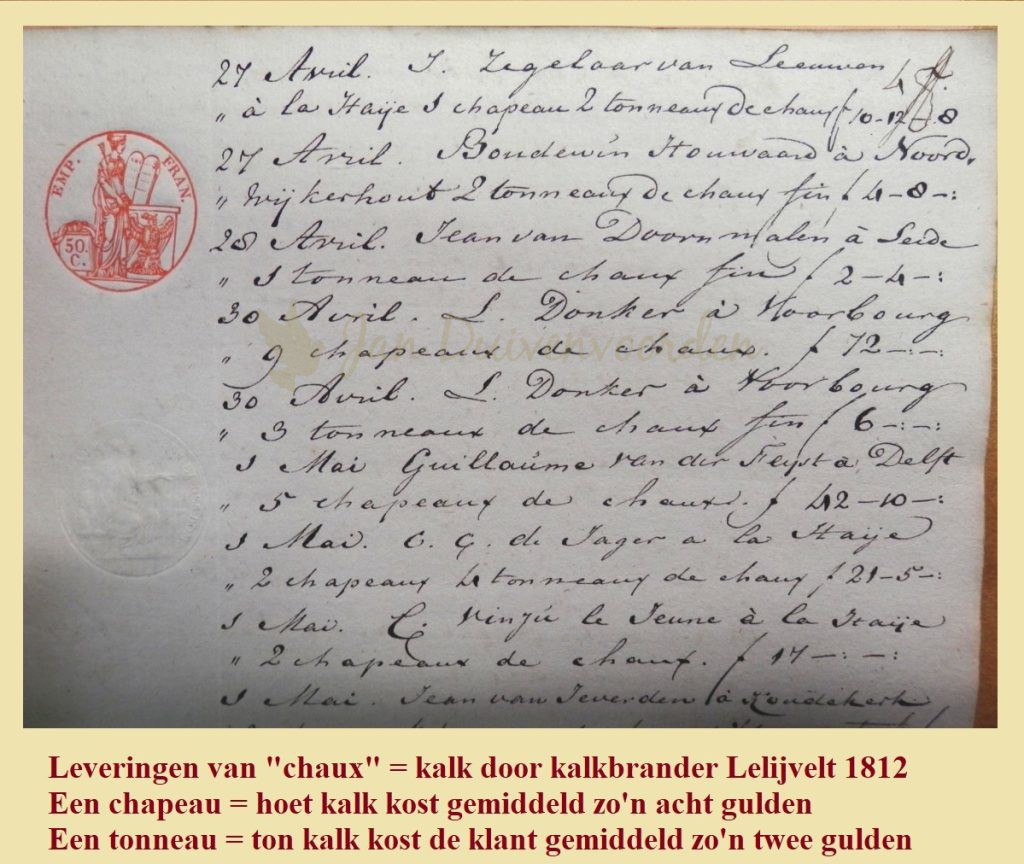 27 Avril. J. Zegelaar van Leeuwen
„ à la Haije 1 chapeau 2 tonneaux de chaux f 10-12-8
27 Avril. Boudewin Houwaard à Noord,
„ Wijkerhout 2 tonneaux de chaux fin f 4-8-:
28 Avril. Jean van Doornmalen à Leide
„ 1 tonneau de chaux fin f 2-4-:
30 Avril. L. Donker à Voorbourg
„ 9 chapeaux de chaux. f 72-:-:
30 Avril. L. Donker à Voorbourg
„ 3 tonneaux de chaux fin f 6-:-:
1 Mai Guillaúme van der Feijst à Delft
„ 5 chapeaux de chaux. f 42-10-:
1 Mai. C. G. de Jager a la Haije
„ 2 chapeaux 4 tonneaux de chaux f 21-5-:
1 Mai. C. Vinjú le Jeune à la Haije
„ 2 chapeaux de chaux. f 17-:-:
1 Mai. Jean van Jeverden à Koudekerk
EMP. FRAN.
50. C.
Jan Duivenvoorden
Leveringen van "chaux" = kalk door kalkbrander Lelijvelt 1812
Een chapeau = hoet kalk kost gemiddeld zo'n acht gulden
Een tonneau = ton kalk kost de klant gemiddeld zo'n twee gulden